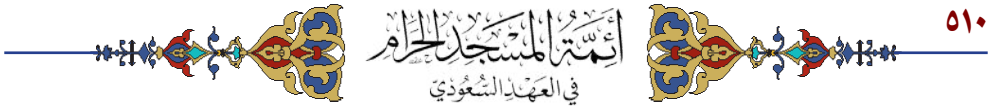 ٥١٠
أئمة المسجد الحرام
في العهد السعودي